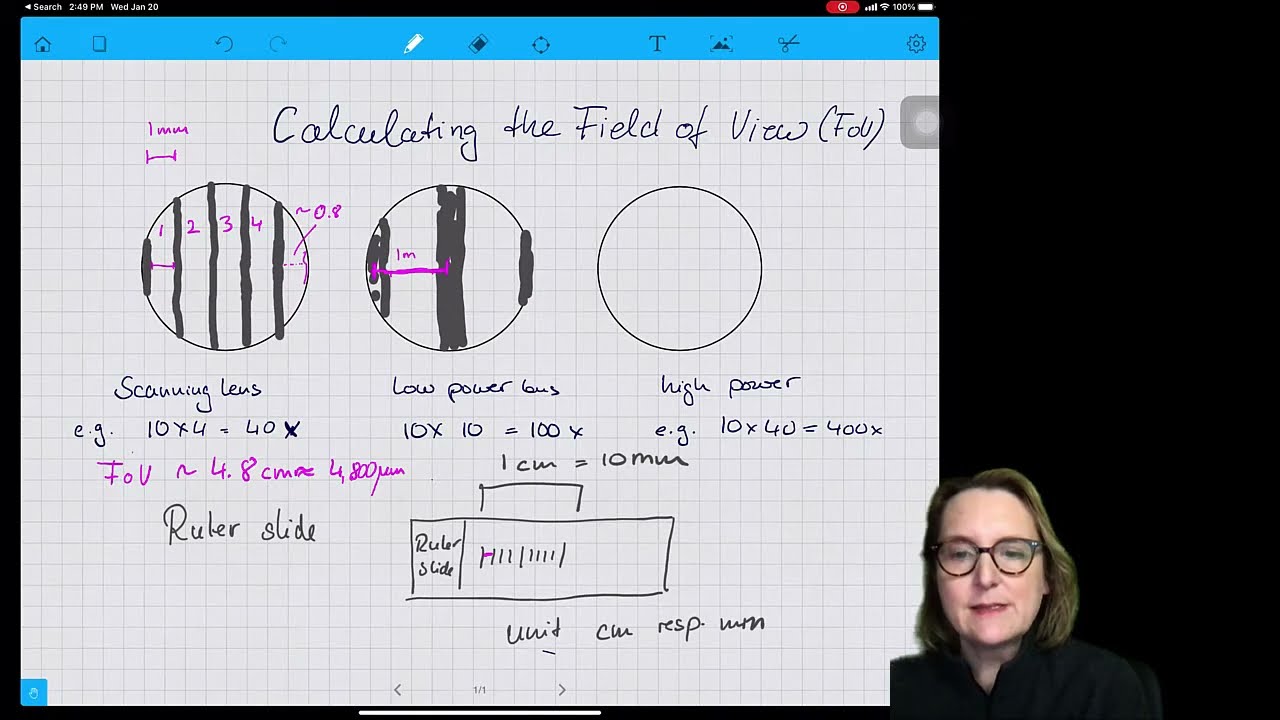 Search 2:49 PM Wed Jan 20 100%
T
Calculating the Field of View (FoV)
1mm
1 2 3 4 ~0.8
1m
Scanning lens
Low power lens
high power
e.g. 10x4 = 40x
10x 10 = 100x
e.g. 10x40 = 400x
FoV ~ 4.8cm ≈ 4,800µm
1cm = 10mm
Ruler slide
Ruler
slide
unit cm resp. mm
1/1